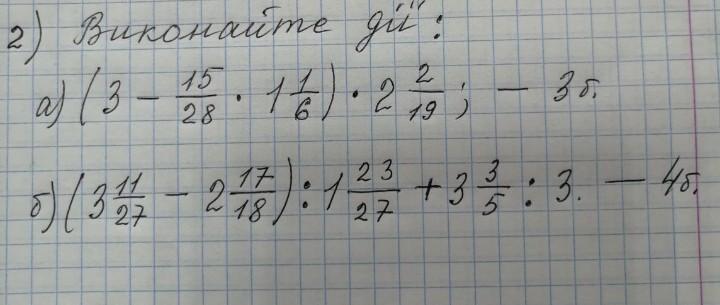 2) Виконайте дії:
а) (3 - 15/28 · 1 1/6) · 2 2/19; - 3б.
б) (3 11/27 - 2 17/18) : 1 23/27 + 3 3/5 : 3. - 4б.